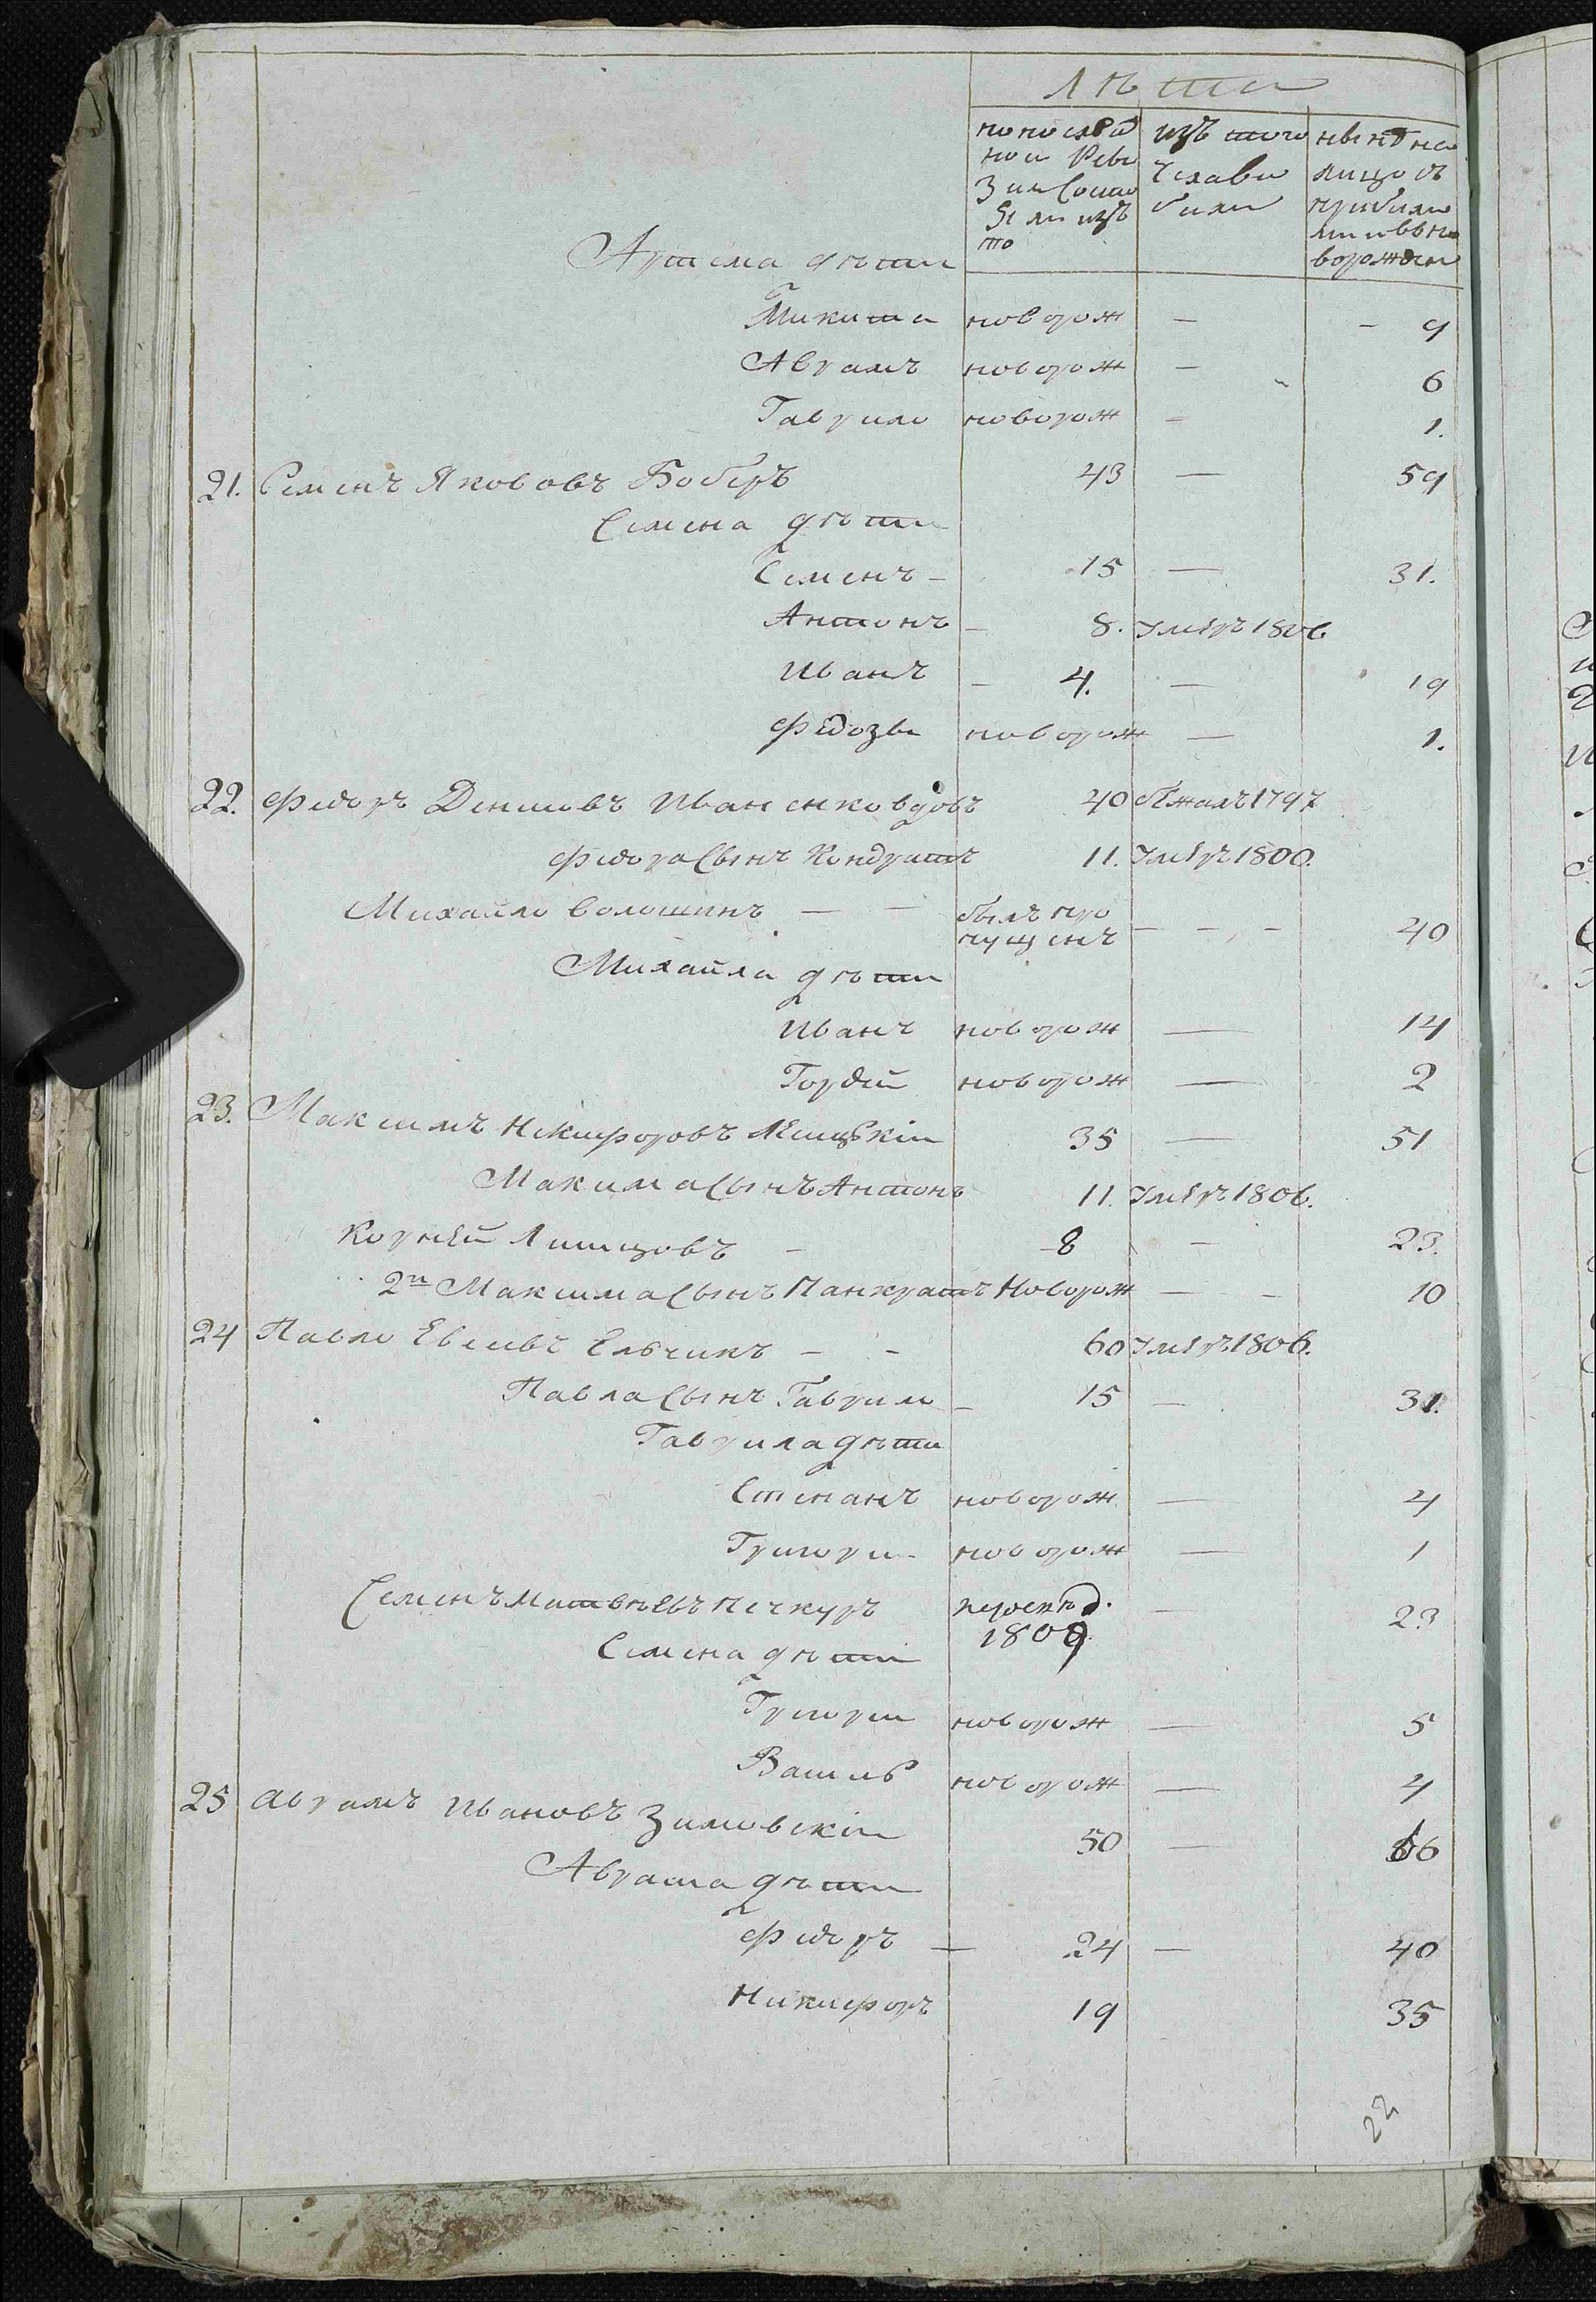 лѣта
по послѣд изъ того нынѣ на
ной Реви числа вы лицо съ
зіи состо были прибылы
яли изъ ми и вь но
то ворожден
Артема дѣти
Микита новорож — - 9
Аврамъ новорож — 6
Гаврило новорож - 1.
21. Семенъ Якововъ Боберъ 43 — 59
Семена дѣти
Семенъ - 15 — 31.
Антонъ - 8. Умеръ 1806
Иванъ - 4. — 19
Федозъи новорож — 1.
22. Федоръ Денисовъ Иваненковдовъ 40 бѣжалъ 1797
Федора сынъ Кондратъ 11. Умеръ 1800.
Михайло Волошинъ — — былъ про
пущенъ — - - 40
Михайла дѣти
Иванъ новорож — 14
Гордѣй новорож — 2
23. Максимъ Никифоровъ 35 — 51
Максима сынъ Антонъ 11. Умеръ 1806.
Корнѣй Липцовъ - 8 - 23.
2й Максима сынъ Панкратъ новорож — - 10
24 Павло Евсѣвъ Ельчикъ - - 60 Умеръ 1806.
Павла сынъ Гаврило - 15 - 31.
Гаврила дѣти
Степанъ новорож — 4
Григори новорож — 1
Семенъ Матвѣевъ Печкуръ — 23
1809
Семена дѣти
Григори новорож — 5
Василь новорож — 4
25 Аврамъ Ивановъ Зимовскій 50 — 66
Аврама дѣти
Федоръ — 24 — 40
Никифоръ 19 35
22